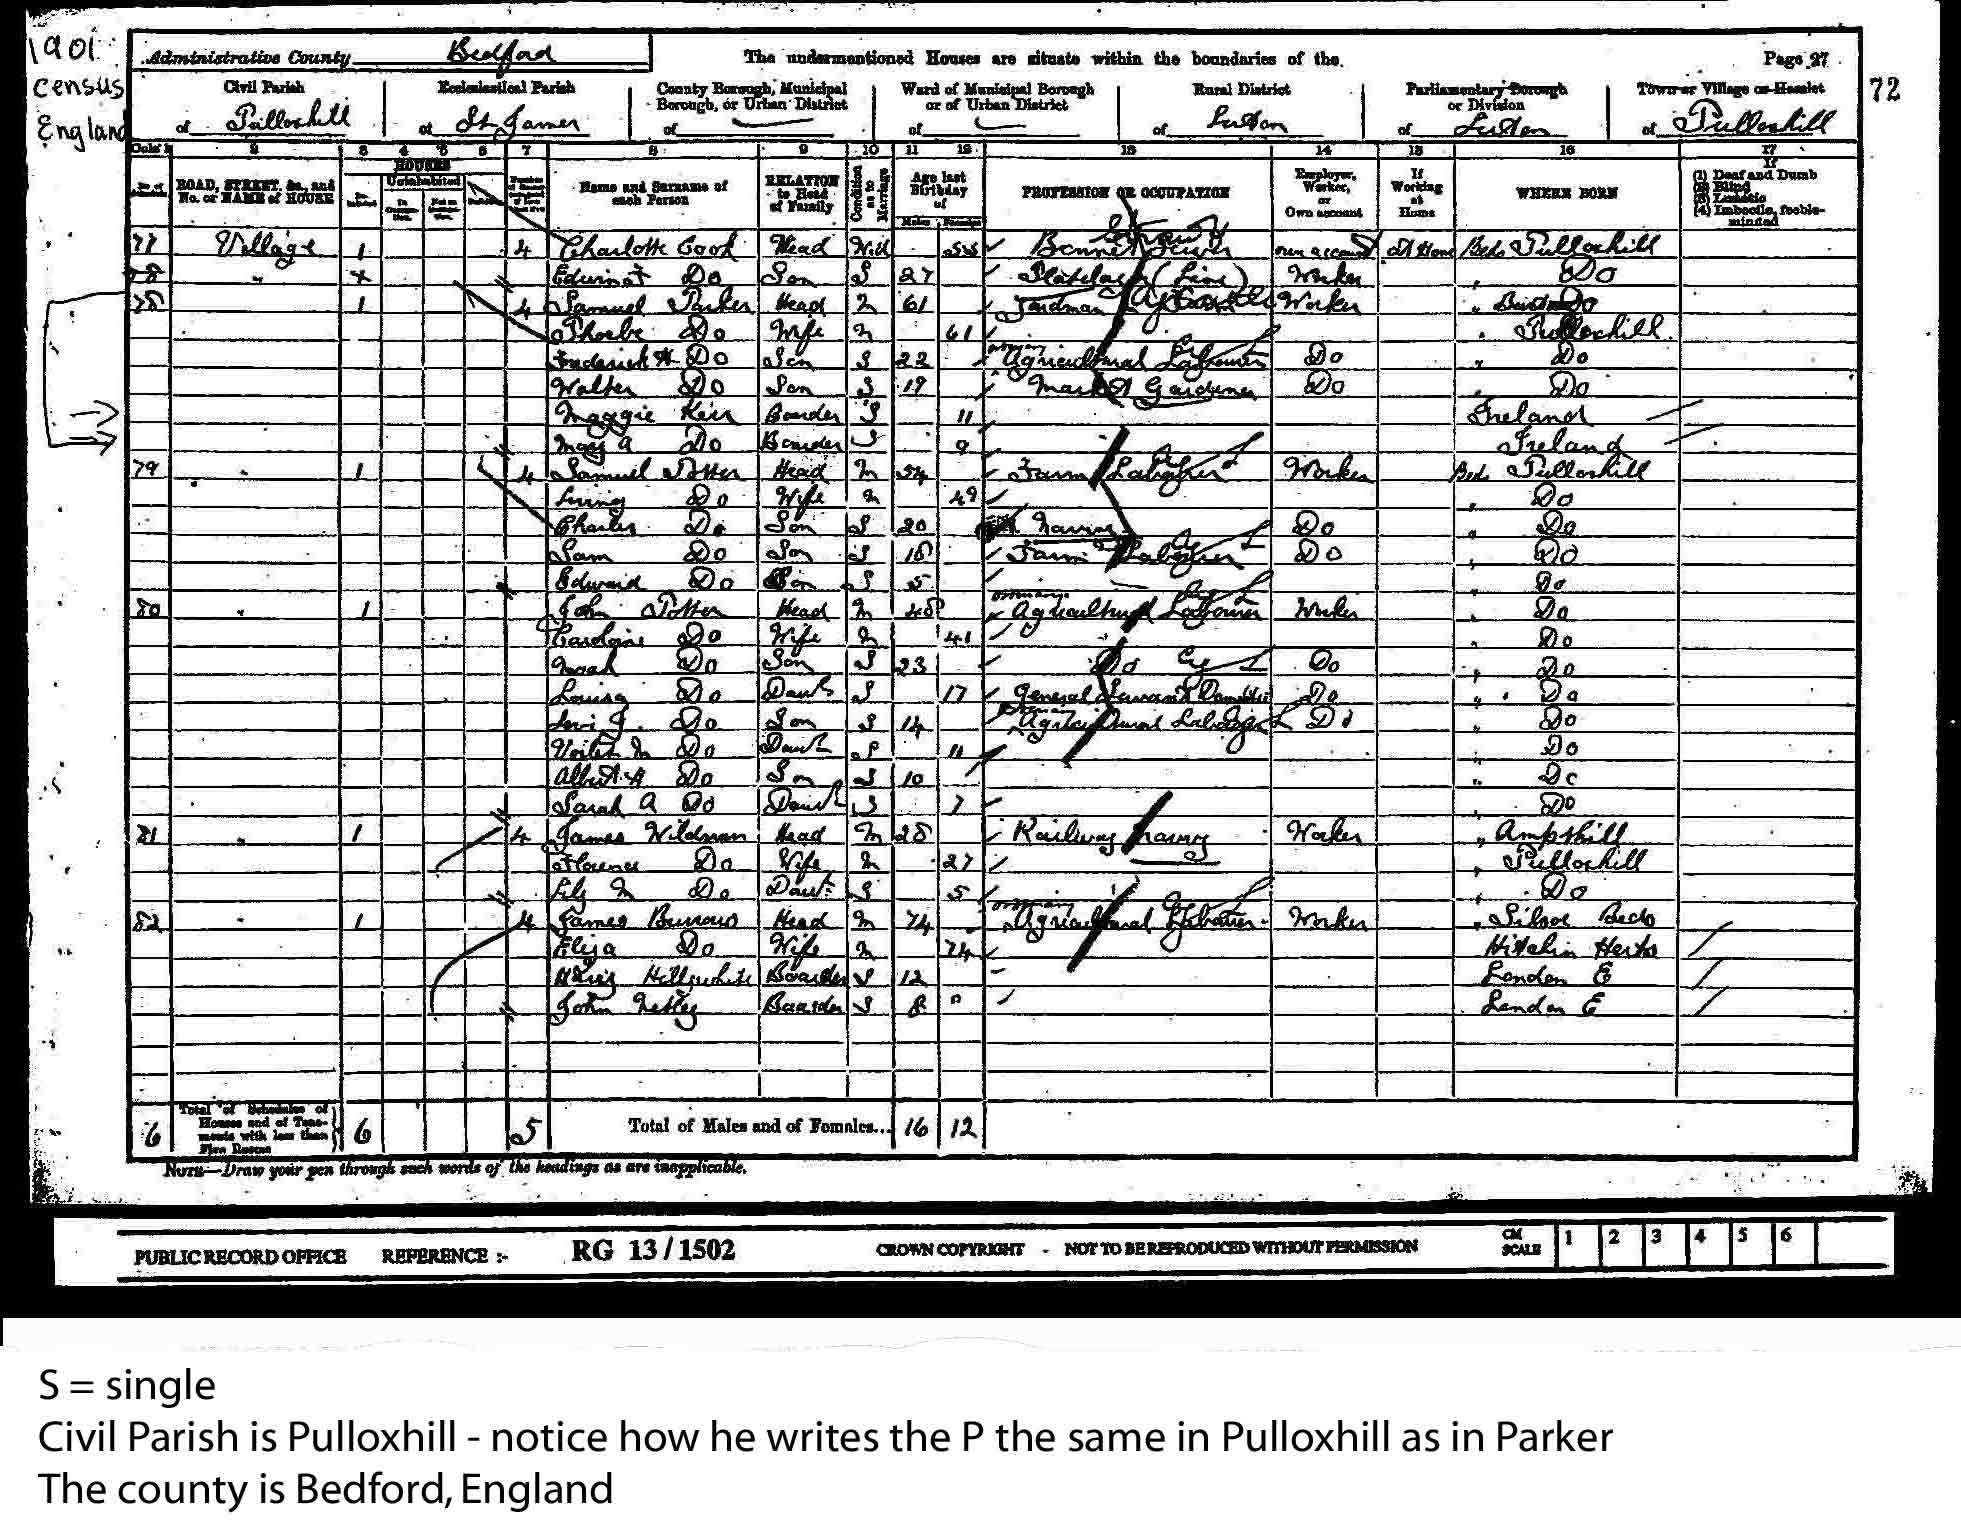 1901
census
England
Administrative County Bedford
The undermentioned Houses are situate within the boundaries of the
Page 27
72
Civil Parish of Pulloxhill
Ecclesiastical Parish of St James
County Borough, Municipal Borough, or Urban District of
Ward of Municipal Borough or of Urban District of
Rural District of Luton
Parliamentary Borough or Division of Luton
Town or Village or Hamlet of Pulloxhill
2 3 4 5 6 7 8 9 10 11 12 13 14 15 16 17
ROAD, STREET, &c., and No. or NAME of HOUSE
HOUSES
Uninhabited
Name and Surname of each Person
RELATION to Head of Family
Condition as to Marriage
Age last Birthday of
Males Females
PROFESSION OR OCCUPATION
Employer, Worker, or Own account
If Working at Home
WHERE BORN
If (1) Deaf and Dumb (2) Blind (3) Lunatic (4) Imbecile, feeble-minded
77 Village 1 4 Charlotte Cook Head Wid 55 Straw Bonnet Sewer own account At Home Beds Pulloxhill
78 " x Edwin Do Son S 27 Platelayer (Line) Worker " Do
78 1 4 Samuel Parker Head M 61 Worker "
Phoebe Do Wife M 61 " Pulloxhill
Frederick H Do Son S 22 ordinary Agricultural Labourer Do " Do
Walter Do Son S 19 Market Gardener Do " Do
Maggie Keir Boarder S 11 Ireland
Mary A Do Boarder S 9 Ireland
79 " 1 4 Samuel Potter Head M 54 Farm Labourer Worker Beds Pulloxhill
Do Wife M 49 " Do
Charles Do Son S 20 Navvy Do " Do
Sam Do Son S 18 Farm Labourer Do " Do
Edward Do Son S 5 " Do
80 " 1 John Potter Head M 48 ordinary Agricultural Labourer Worker " Do
Caroline Do Wife M 41 " Do
Noah Do Son S 23 Do Do " Do
Louisa Do Daur S 17 General Servant Domestic Do " Do
Levi J. Do Son S 14 Agricultural Labourer Do " Do
Violet M Do Daur S 11 " Do
Albert A Do Son S 10 " Do
Sarah A Do Daur S 7 " Do
81 " 1 4 James Wildman Head M 28 Railway Navvy Worker " Ampthill
Florence Do Wife M 27 " Pulloxhill
Lily M Do Daur S 5 " Do
82 " 1 4 James Burrows Head M 74 ordinary Agricultural Labourer Worker " Silsoe Beds
Eliza Do Wife M 74 Hitchin Herts
Hillswhite Boarder S 12 London E
John Netley Boarder S 8 London E
6
Total of Schedules of Houses and of Tenements with less than Five Rooms
6 5
Total of Males and of Females... 16 12
NOTE—Draw your pen through such words of the headings as are inapplicable.
PUBLIC RECORD OFFICE REFERENCE :- RG 13/1502 CROWN COPYRIGHT - NOT TO BE REPRODUCED WITHOUT PERMISSION CM SCALE 1 2 3 4 5 6
S = single
Civil Parish is Pulloxhill - notice how he writes the P the same in Pulloxhill as in Parker
The county is Bedford, England